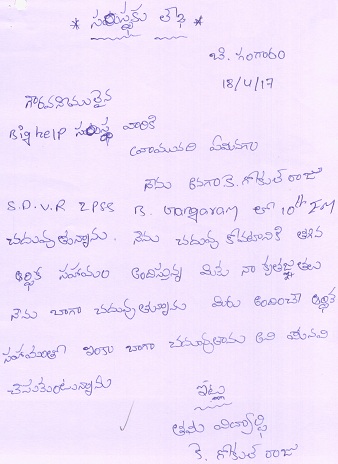 * సంస్థకు లేఖ *
బి. గంగారం
18/4/17
గౌరవనియులైన
Big help సంస్థ వారికి
వ్రాయునది ఏమనగా
నేను అనగా K. గోకుల్ రాజు
S.D.V.R ZPSS B. Gangaram లో 10th EM
చదువుతున్నాను. నేను చదువు కోవటానికి తగిన
ఆర్థిక సహాయం అందిస్తున్న మీకు నా కృతజ్ఞతలు
నేను బాగా చదువుతున్నాను మీరు అందించే ఆర్థిక
సహాయంతో ఇంకా బాగా చదువుతాను అని మనవి
చేసుకుంటున్నాను
ఇట్లు
తమ విద్యార్థి
కె. గోకుల్ రాజు